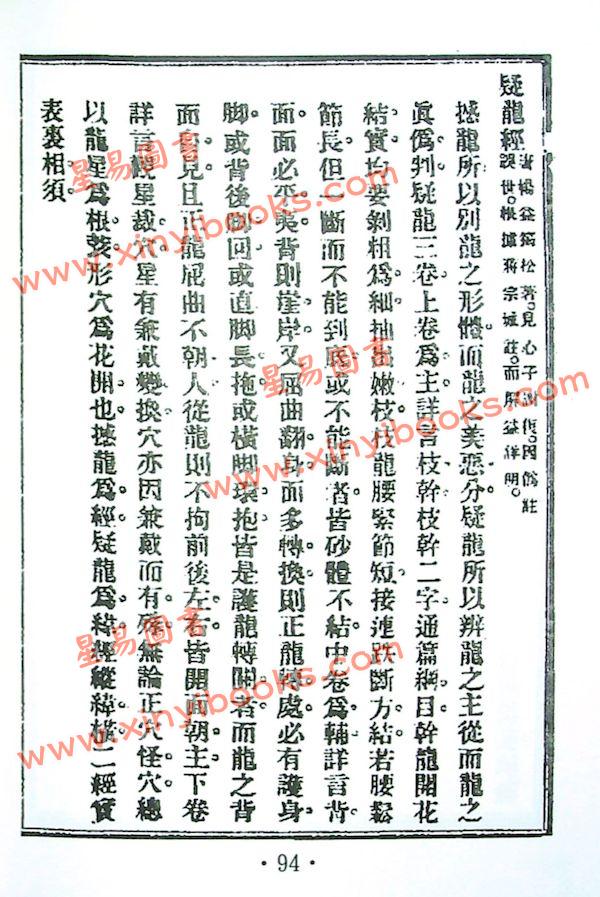 疑龍經
撼龍所以別龍之形體而龍之美惡分疑龍所以辨龍之主從而龍之
眞僞判疑龍三卷上卷爲主詳言枝幹枝幹二字通篇綱目幹龍開花
結實均要剝粗爲細抽出嫩枝枝龍腰緊節短接連跌斷方結若腰鬆
節長但一斷而不能到底或不能斷者皆砂體不結中卷爲輔詳言背
面面必平美背則崖岸又屈曲翻身面多轉換則正龍轉處必有護身
脚或背後脚回或直脚長拖或橫脚環抱皆是護龍轉關者而龍之背
面自見且正龍屈曲不朝人從龍則不拘前後左右皆開面朝主下卷
詳言觀星裁穴星有兼戴變換穴亦因兼戴而有殊無論正穴怪穴總
以龍星爲根荄形穴爲花開也撼龍爲經疑龍爲緯經縱緯橫二經實
表裏相須
星易圖書
www.xinyibooks.com
星易圖書
www.xinyibooks.com
星易圖書
www.xinyibooks.com
·94·